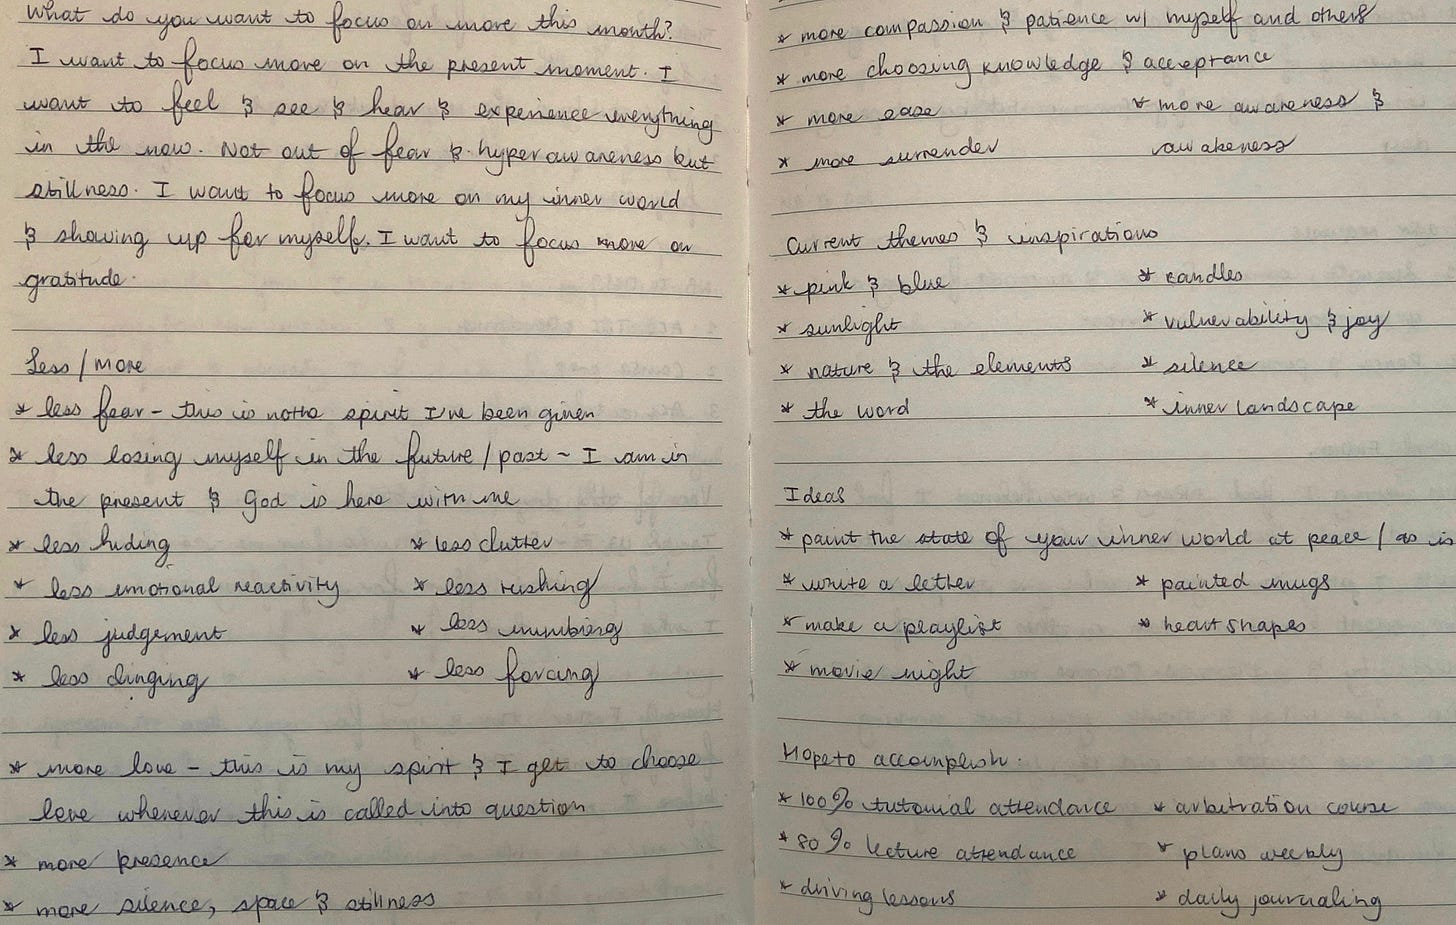 What do you want to focus on more this month?
I want to focus more on the present moment. I
want to feel & see & hear & experience everything
in the now. Not out of fear & hyper awareness but
stillness. I want to focus more on my inner world
& showing up for myself. I want to focus more on
gratitude.
Less / more
* less fear - this is not the spirit I've been given
* less losing myself in the future / past - I am in
the present & God is here with me
* less hiding * less clutter
* less emotional reactivity * less rushing
* less judgement * less numbing
* less clinging * less forcing
* more love - this is my spirit & I get to choose
love whenever this is called into question
* more presence
* more silence, space & stillness
* more compassion & patience w/ myself and others
* more choosing knowledge & acceptance
* more ease * more awareness &
* more surrender awakeness
Current themes & inspirations
* pink & blue * candles
* sunlight * vulnerability & joy
* nature & the elements * silence
* the word * inner landscape
Ideas
* paint the state of your inner world at peace / as is
* write a letter * painted mugs
* make a playlist * heart shapes
* movie night
Hope to accomplish.
* 100% tutorial attendance * arbitration course
* 80% lecture attendance * plans weekly
* driving lessons * daily journaling